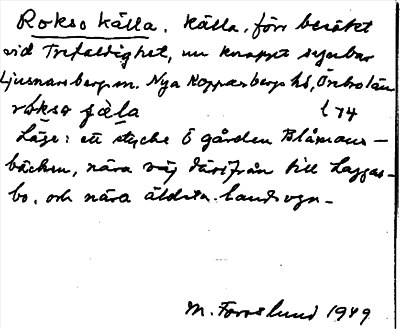 Rokso källa. Källa, förr besökt
vid Trefaldighet, nu knappt synbar
Ljusnarsbergs sn. Nya Kopparbergs hd, Örebro län
rokso çäla t 74
Läge: ett stycke Ö gården Blåmans-
bäcken, nära väg därifrån till Laggas-
bo, och nära äldsta landsvägn-
M. Forslund 1949